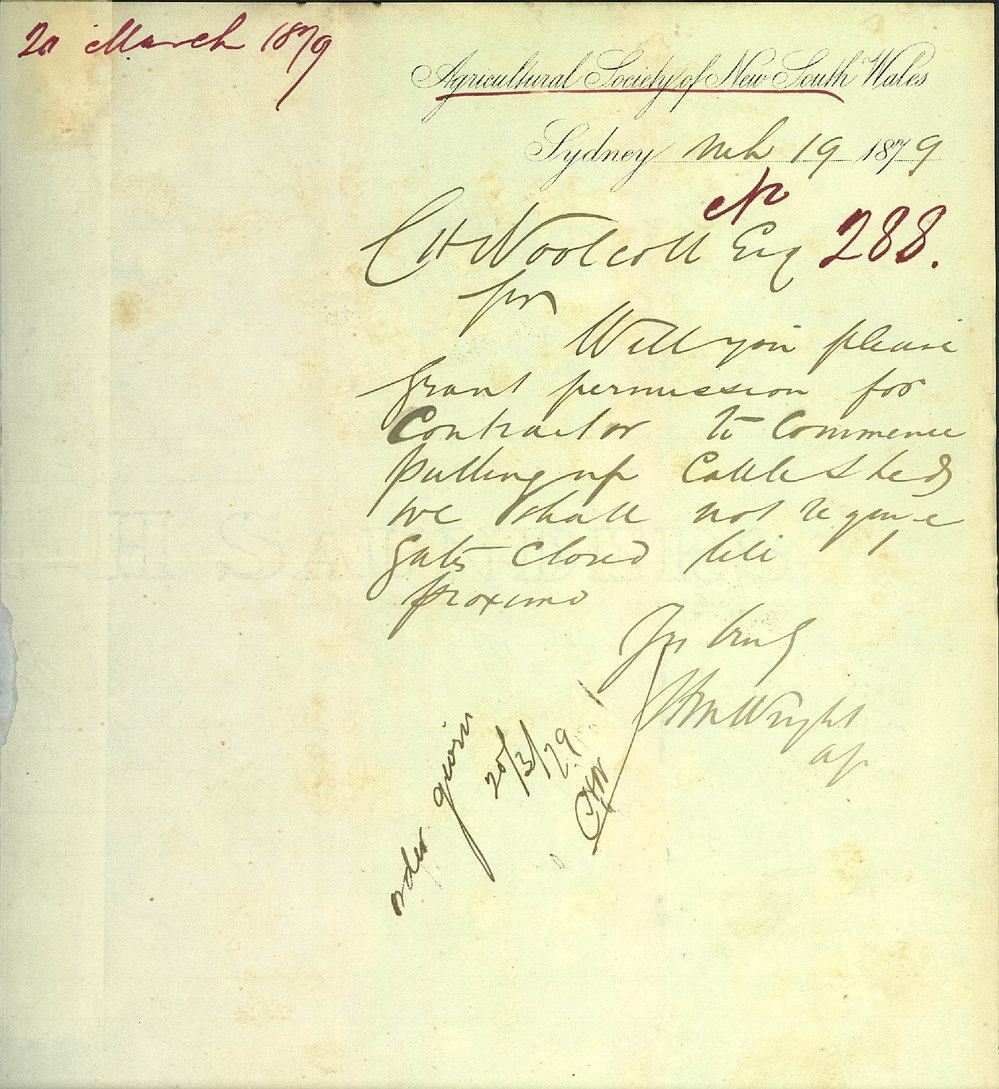 20 March 1879
Agricultural Society of New South Wales
Sydney Mch 19 1879
No 288.
C H Woolcott Esq
Sir
Will you please
grant permission for
Contractor to Commence
putting up Cattle Sheds
we shall not require
gates closed till 1
proximo
Yrs truly
Wright
order given
20/3/79
CHW